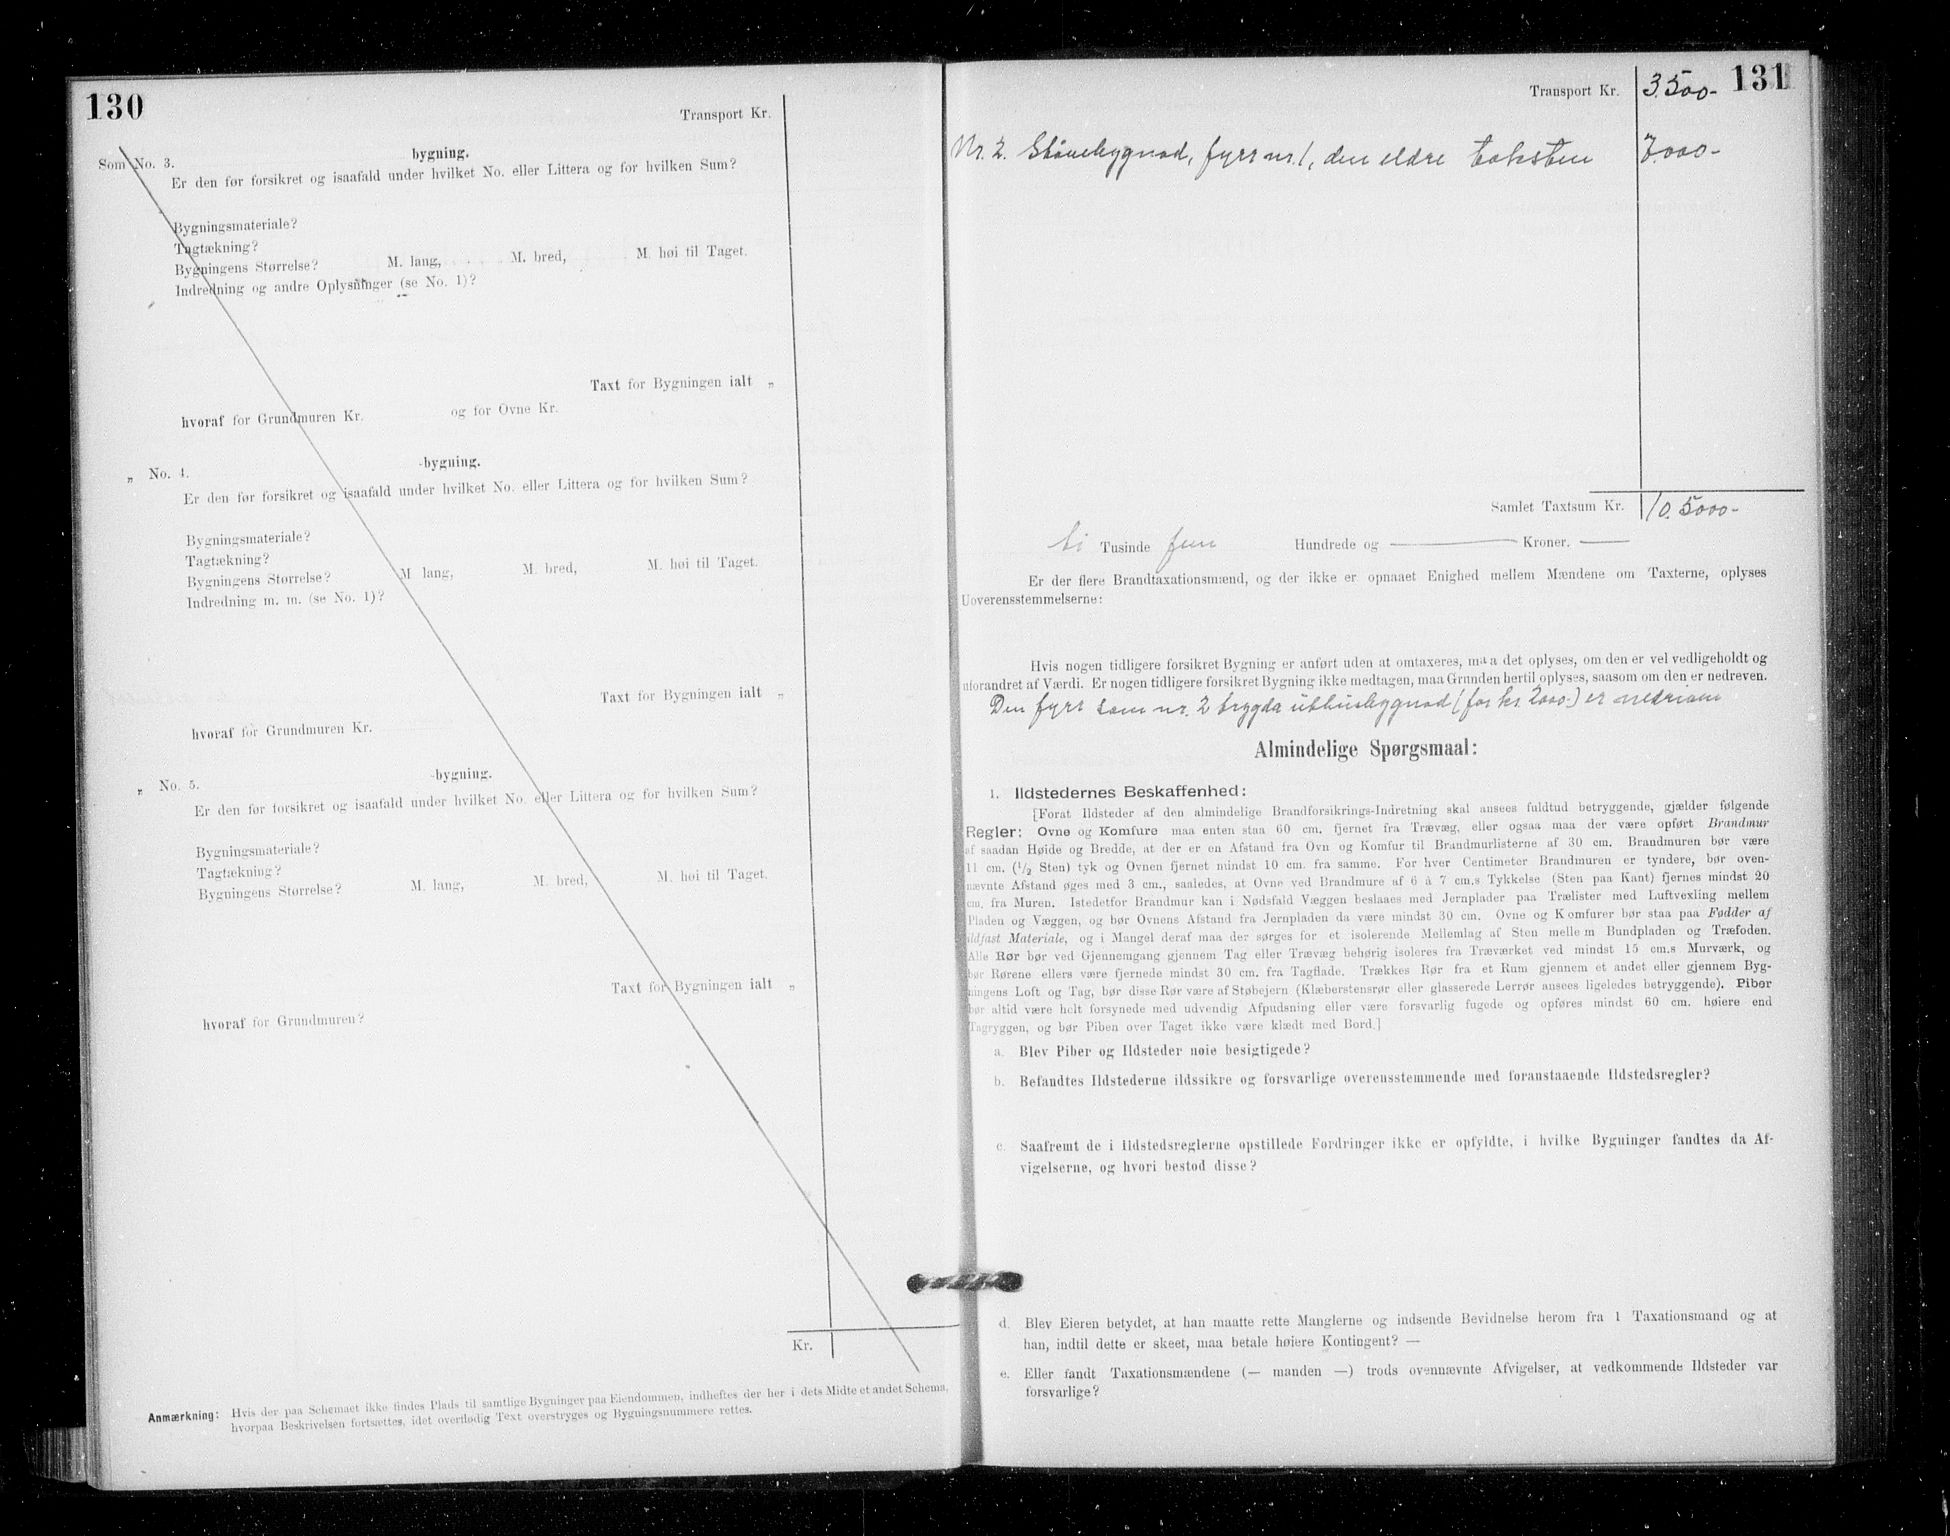 130
Transport Kr.
Som No. 3. bygning.
Er den før forsikret og isaafald under hvilket No. eller Littera og for hvilken Sum?
Bygningsmateriale?
Tagtækning?
Bygningens Størrelse? M. lang, M. bred, M. høi til Taget.
Indredning og andre Oplysninger (se No. 1)?
Taxt for Bygningen ialt „
hvoraf for Grundmuren Kr. og for Ovne Kr.
„ No. 4. -bygning.
Er den før forsikret og isaafald under hvilket No. eller Littera og for hvilken Sum?
Bygningsmateriale?
Tagtækning?
Bygningens Størrelse? M lang, M. bred, M. høi til Taget.
Indredning m. m. (se No. 1)?
Taxt for Bygningen ialt „
hvoraf for Grundmuren Kr.
„ No. 5. -bygning.
Er den før forsikret og isaafald under hvilket No. eller Littera og for hvilken Sum?
Bygningsmateriale?
Tagtækning?
Bygningens Størrelse? M. lang, M. bred, M. høi til Taget.
Taxt for Bygningen ialt „
hvoraf for Grundmuren?
Kr.
Anmærkning: Hvis der paa Schemaet ikke findes Plads til samtlige Bygninger paa Eiendommen, indheftes der her i dets Midte et andet Schema,
hvorpaa Beskrivelsen fortsættes, idet overflødig Text overstryges og Bygningsnummere rettes.
131
Transport Kr. 3.500-
Nr. 2. Stovebygnad, fyrr nr. 1, den eldre taksten 7.000-
Samlet Taxtsum Kr. 10.5000-
ti Tusinde fem Hundrede og — Kroner. —
Er der flere Brandtaxationsmænd, og der ikke er opnaaet Enighed mellem Mændene om Taxterne, oplyses
Uoverensstemmelserne:
Hvis nogen tidligere forsikret Bygning er anført uden at omtaxeres, maa det oplyses, om den er vel vedligeholdt og
uforandret af Værdi. Er nogen tidligere forsikret Bygning ikke medtagen, maa Grunden hertil oplyses, saasom om den er nedreven.
Den fyrr som nr. 2 trygda uthusbygnad (for kr. 2000.) er nedriven
Almindelige Spørgsmaal:
1. Ildstedernes Beskaffenhed:
[Forat Ildsteder af den almindelige Brandforsikrings-Indretning skal ansees fuldtud betryggende, gjælder følgende
Regler: Ovne og Komfure maa enten staa 60 cm. fjernet fra Trævæg, eller ogsaa maa der være opført Brandmur
af saadan Høide og Bredde, at der er en Afstand fra Ovn og Komfur til Brandmurlisterne af 30 cm. Brandmuren bør være
11 cm. (1/2 Sten) tyk og Ovnen fjernet mindst 10 cm. fra samme. For hver Centimeter Brandmuren er tyndere, bør oven-
nævnte Afstand øges med 3 cm., saaledes, at Ovne ved Brandmure af 6 à 7 cm.s Tykkelse (Sten paa Kant) fjernes mindst 20
cm. fra Muren. Istedetfor Brandmur kan i Nødsfald Væggen beslaaes med Jernplader paa Trælister med Luftvexling mellem
Pladen og Væggen, og bør Ovnens Afstand fra Jernpladen da være mindst 30 cm. Ovne og Komfurer bør staa paa Fødder af
ildfast Materiale, og i Mangel deraf maa der sørges for et isolerende Mellemlag af Sten mellem Bundpladen og Træfoden.
Alle Rør bør ved Gjennemgang gjennem Tag eller Trævæg behørig isoleres fra Træværket ved mindst 15 cm.s Murværk, og
bør Rørene ellers være fjernede mindst 30 cm. fra Tagflade. Trækkes Rør fra et Rum gjennem et andet eller gjennem Byg-
ningens Loft og Tag, bør disse Rør være af Støbejern (Klæberstensrør eller glasserede Lerrør ansees ligeledes betryggende). Piber
bør altid være helt forsynede med udvendig Afpudsning eller være forsvarlig fugede og opføres mindst 60 cm. høiere end
Tagryggen, og bør Piben over Taget ikke være klædt med Bord.]
a. Blev Piber og Ildsteder nøie besigtigede?
b. Befandtes Ildstederne ildssikre og forsvarlige overensstemmende med foranstaaende Ildstedsregler?
c. Saafremt de i Ildstedsreglerne opstillede Fordringer ikke er opfyldte, i hvilke Bygninger fandtes da Af-
vigelserne, og hvori bestod disse?
d. Blev Eieren betydet, at han maatte rette Manglerne og indsende Bevidnelse herom fra 1 Taxationsmand og at
han, indtil dette er skeet, maa betale høiere Kontingent? —
e. Eller fandt Taxationsmændene (— manden —) trods ovennævnte Afvigelser, at vedkommende Ildsteder var
forsvarlige?